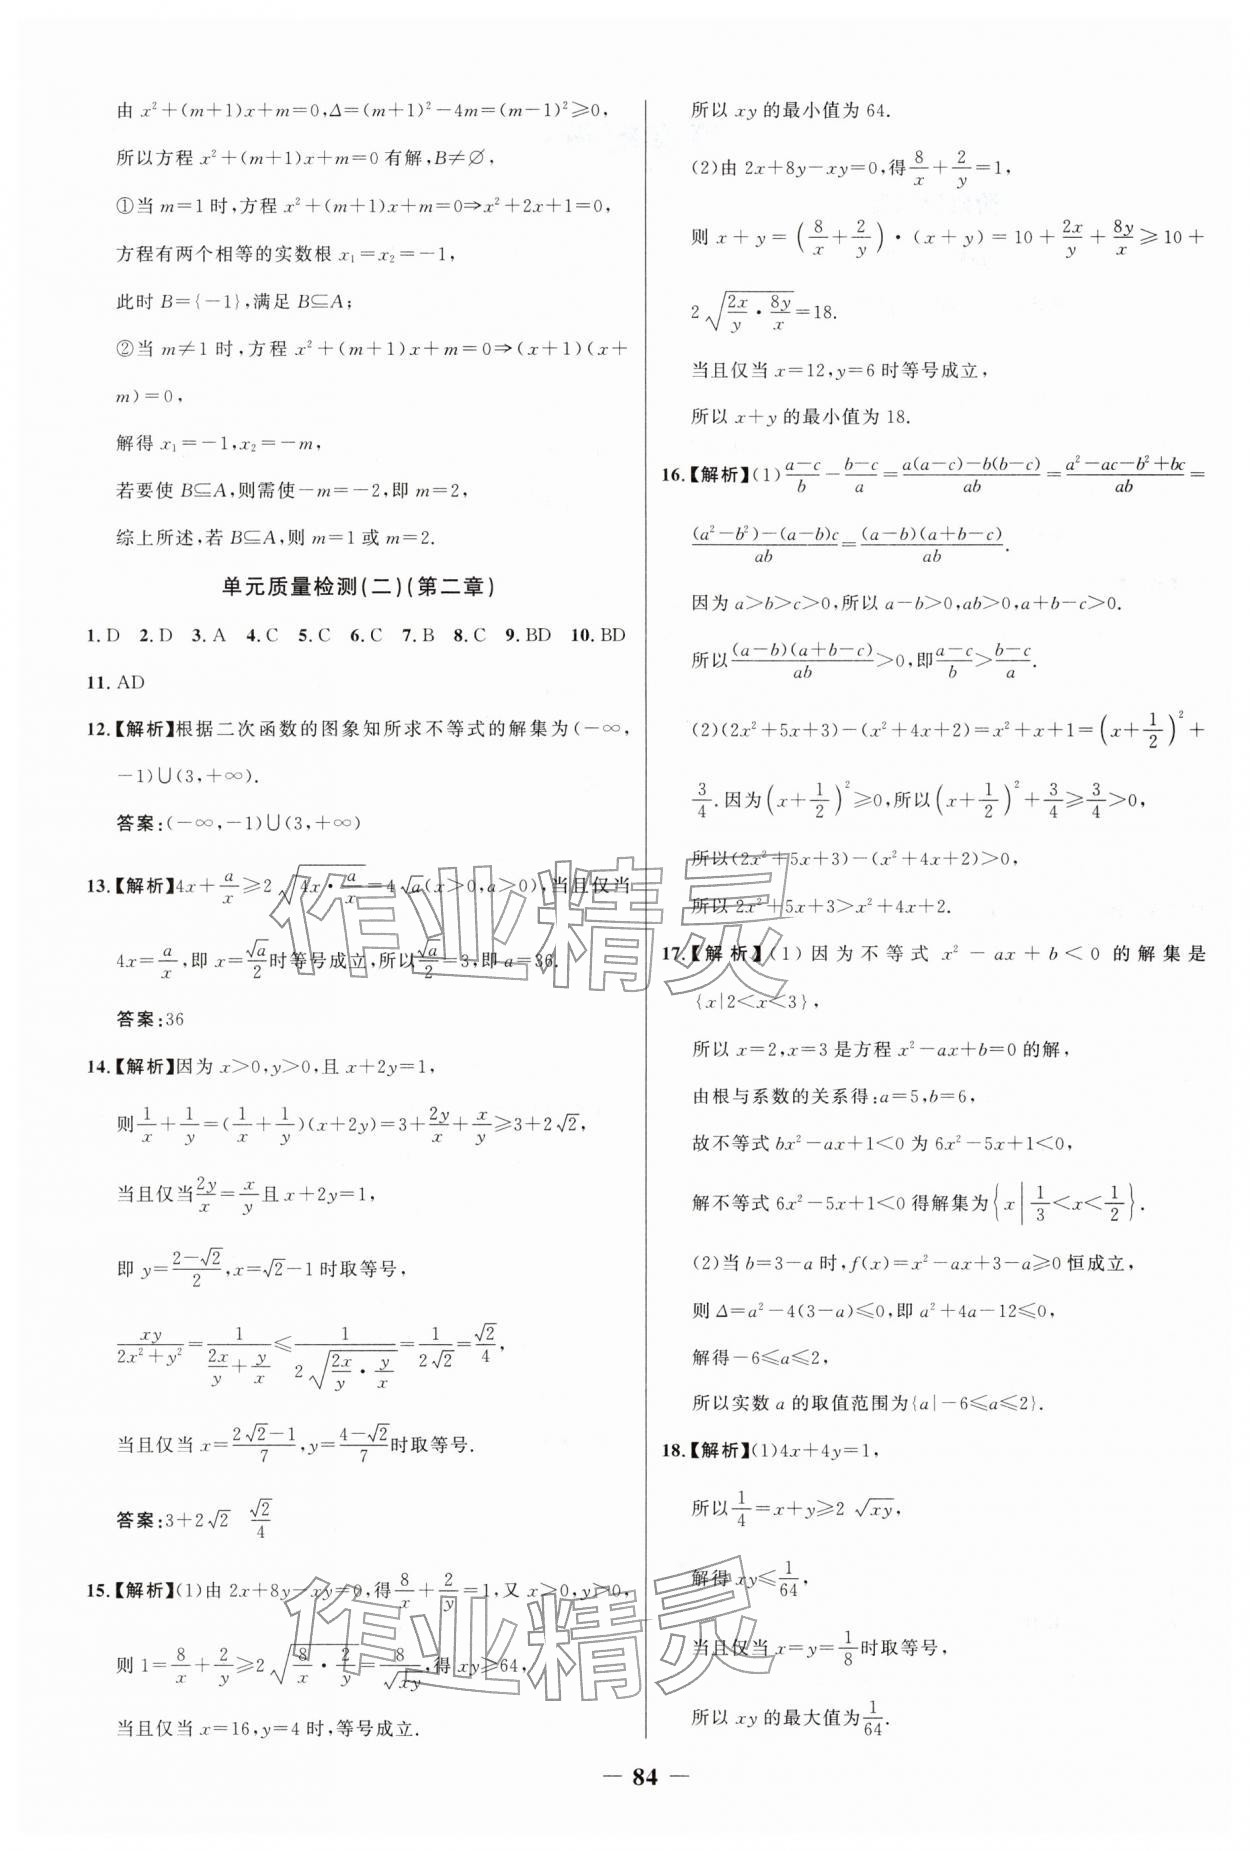 由 x²+(m+1)x+m=0,Δ=(m+1)²-4m=(m-1)²≥0,
所以方程 x²+(m+1)x+m=0 有解,B≠∅,
①当 m=1 时,方程 x²+(m+1)x+m=0⇒x²+2x+1=0,
方程有两个相等的实数根 x₁=x₂=-1,
此时 B={-1},满足 B⊆A;
②当 m≠1 时,方程 x²+(m+1)x+m=0⇒(x+1)(x+
m)=0,
解得 x₁=-1,x₂=-m,
若要使 B⊆A,则需使-m=-2,即 m=2,
综上所述,若 B⊆A,则 m=1 或 m=2.
单元质量检测(二)(第二章)
1. D 2. D 3. A 4. C 5. C 6. C 7. B 8. C 9. BD 10. BD
11. AD
12.【解析】根据二次函数的图象知所求不等式的解集为(-∞,
-1)∪(3,+∞).
答案:(-∞,-1)∪(3,+∞)
13.【解析】4x+a/x≥2√(4x·a/x)=4√a(x>0,a>0),当且仅当
4x=a/x,即 x=√a/2时等号成立,所以√a/2=3,即 a=36.
答案:36
14.【解析】因为 x>0,y>0,且 x+2y=1,
则1/x+1/y=(1/x+1/y)(x+2y)=3+2y/x+x/y≥3+2√2,
当且仅当2y/x=x/y且 x+2y=1,
即 y=(2-√2)/2,x=√2-1 时取等号,
xy/(2x²+y²)=1/(2x/y+y/x)≤1/(2√(2x/y·y/x))=1/(2√2)=√2/4,
当且仅当 x=(2√2-1)/7,y=(4-√2)/7时取等号.
答案:3+2√2 √2/4
15.【解析】(1)由 2x+8y-xy=0,得8/x+2/y=1,又 x>0,y>0,
则 1=8/x+2/y≥2√(8/x·2/y)=8/√(xy),得 xy≥64,
当且仅当 x=16,y=4 时,等号成立.
所以 xy 的最小值为 64.
(2)由 2x+8y-xy=0,得8/x+2/y=1,
则 x+y=(8/x+2/y)·(x+y)=10+2x/y+8y/x≥10+
2√(2x/y·8y/x)=18.
当且仅当 x=12,y=6 时等号成立,
所以 x+y 的最小值为 18.
16.【解析】(1)(a-c)/b-(b-c)/a=(a(a-c)-b(b-c))/ab=(a²-ac-b²+bc)/ab=
((a²-b²)-(a-b)c)/ab=(a-b)(a+b-c)/ab.
因为 a>b>c>0,所以 a-b>0,ab>0,a+b-c>0.
所以(a-b)(a+b-c)/ab>0,即(a-c)/b>(b-c)/a.
(2)(2x²+5x+3)-(x²+4x+2)=x²+x+1=(x+1/2)²+
3/4.因为(x+1/2)²≥0,所以(x+1/2)²+3/4≥3/4>0,
所以(2x²+5x+3)-(x²+4x+2)>0,
所以 2x²+5x+3>x²+4x+2.
17.【解析】(1)因为不等式 x²-ax+b<0 的解集是
{x|2<x<3},
所以 x=2,x=3 是方程 x²-ax+b=0 的解,
由根与系数的关系得:a=5,b=6,
故不等式 bx²-ax+1<0 为 6x²-5x+1<0,
解不等式 6x²-5x+1<0 得解集为{x|1/3<x<1/2}.
(2)当 b=3-a 时,f(x)=x²-ax+3-a≥0 恒成立,
则 Δ=a²-4(3-a)≤0,即 a²+4a-12≤0,
解得-6≤a≤2,
所以实数 a 的取值范围为{a|-6≤a≤2}.
18.【解析】(1)4x+4y=1,
所以1/4=x+y≥2√(xy),
解得 xy≤1/64,
当且仅当 x=y=1/8时取等号,
所以 xy 的最大值为1/64.
— 84 —
作业精灵
作业精灵